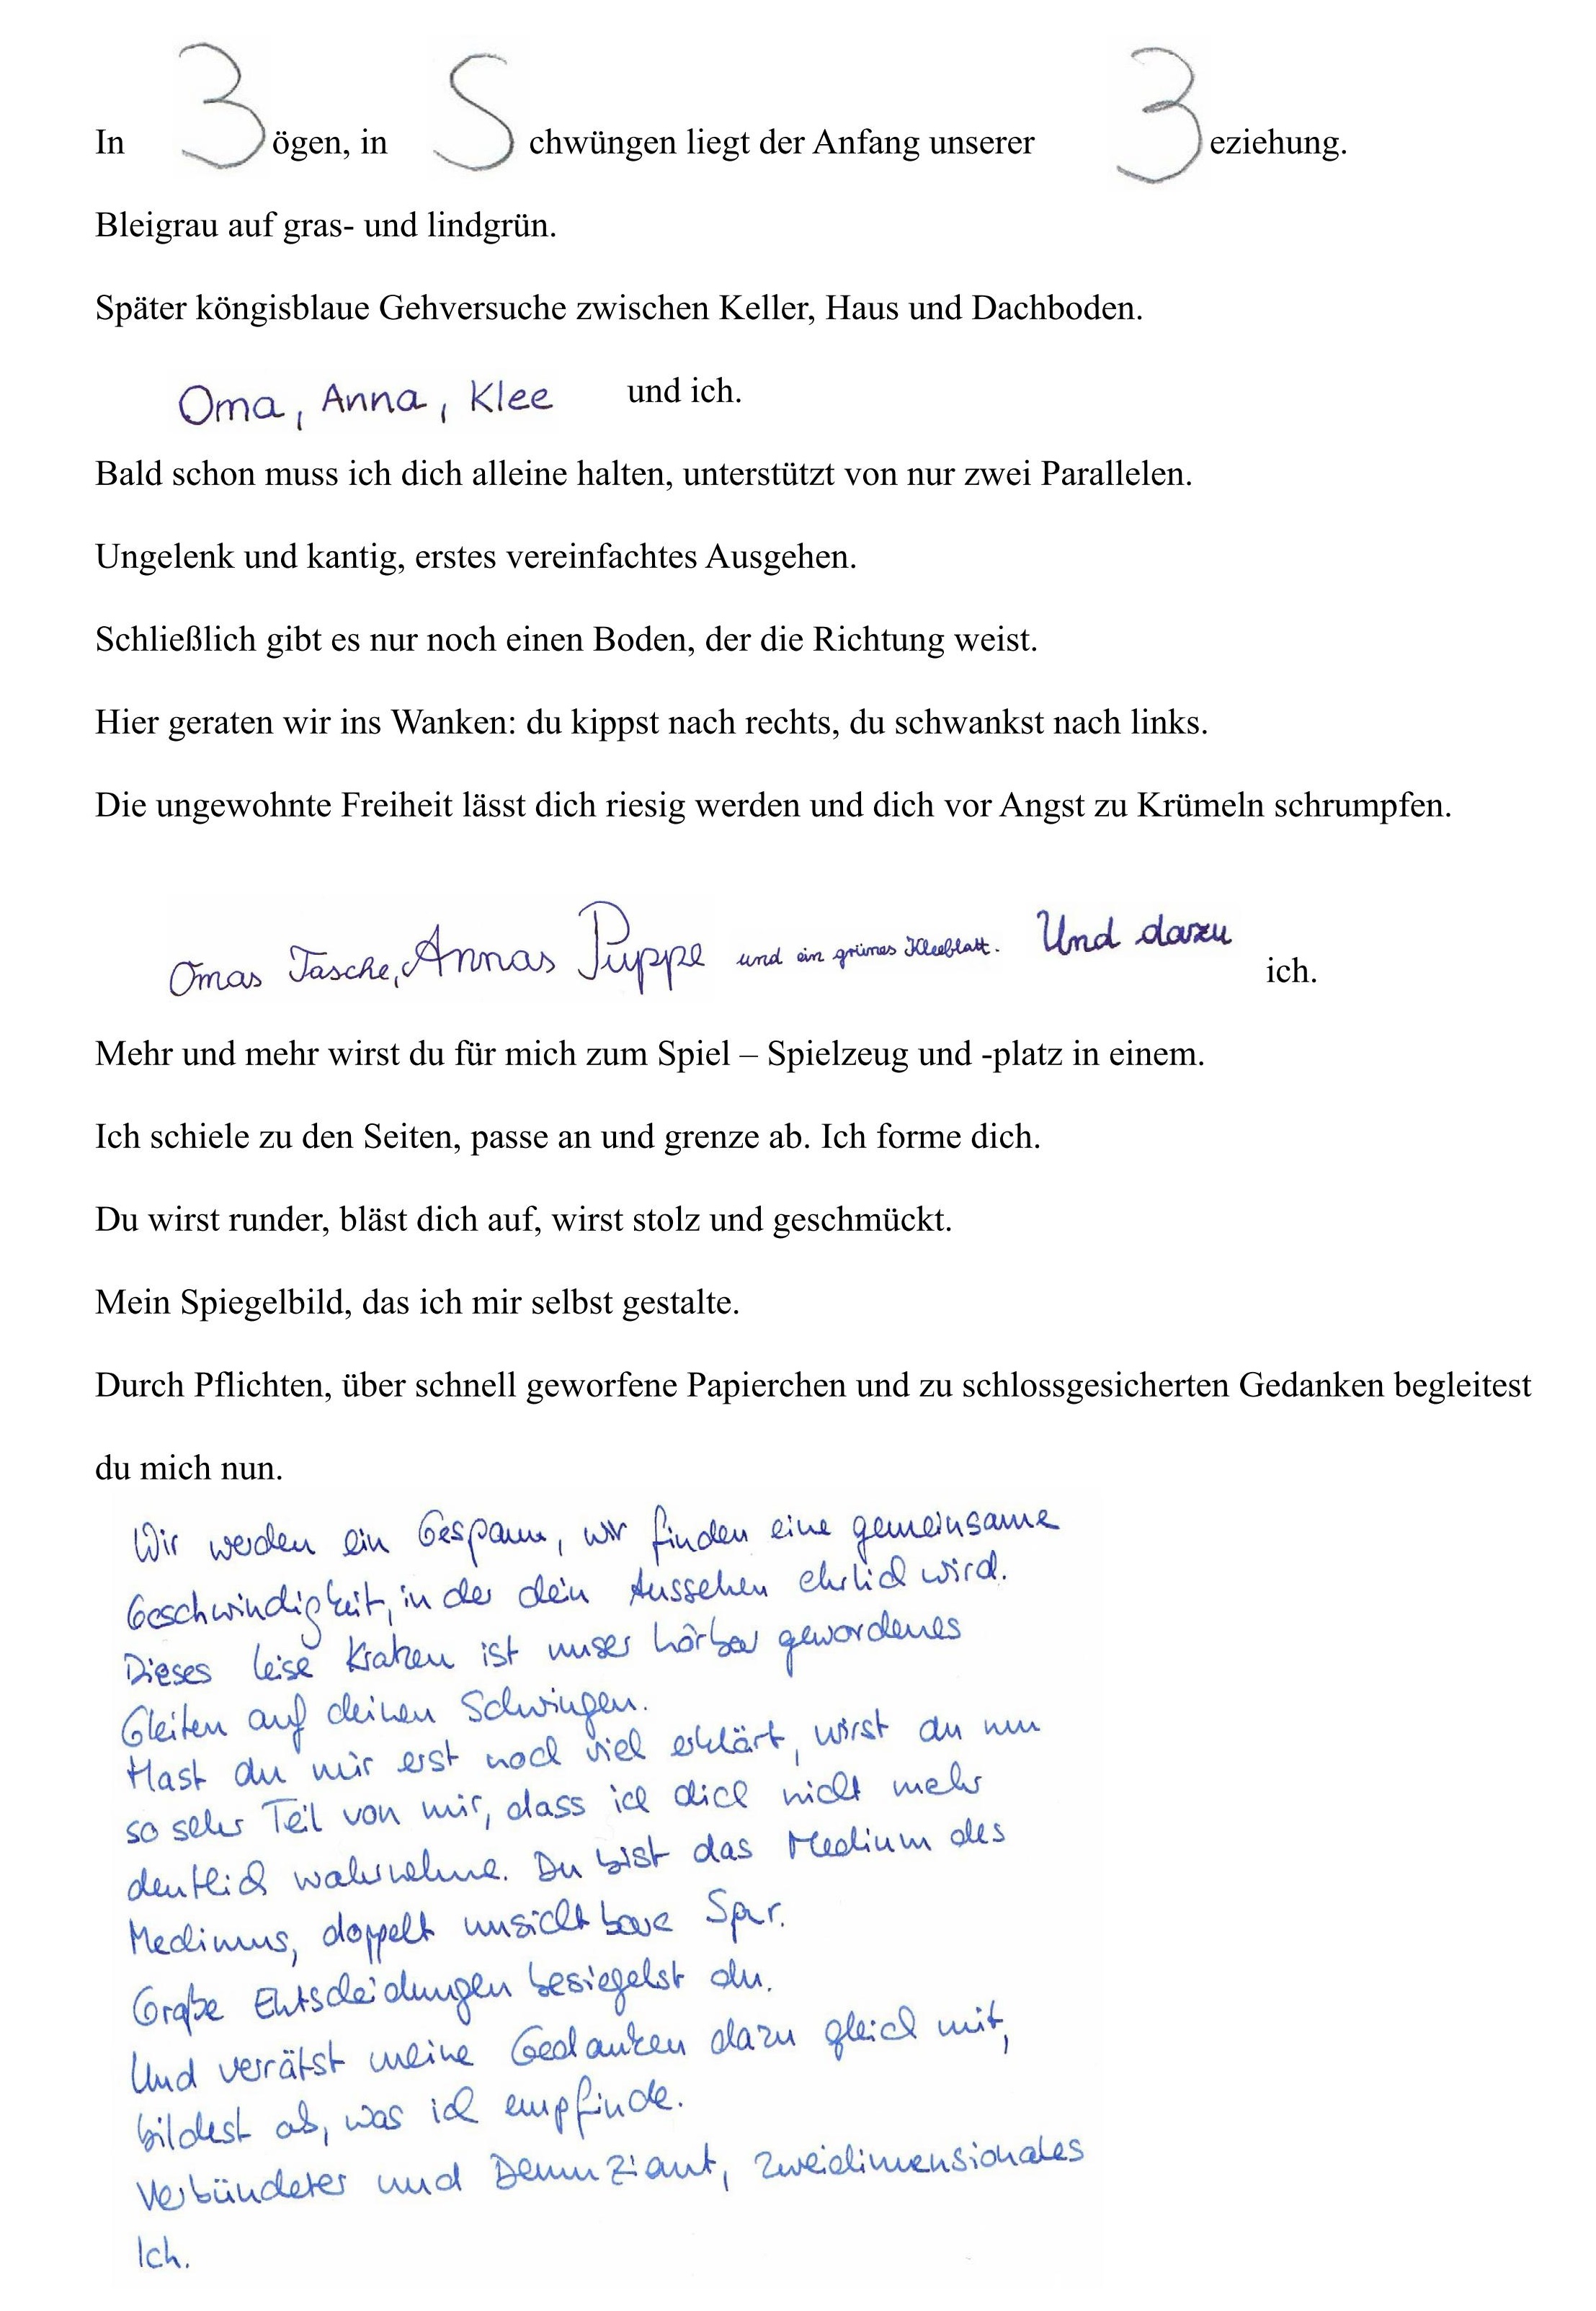 In 3ögen, in Schwüngen liegt der Anfang unserer 3eziehung.
Bleigrau auf gras- und lindgrün.
Später köngisblaue Gehversuche zwischen Keller, Haus und Dachboden.
Oma, Anna, Klee und ich.
Bald schon muss ich dich alleine halten, unterstützt von nur zwei Parallelen.
Ungelenk und kantig, erstes vereinfachtes Ausgehen.
Schließlich gibt es nur noch einen Boden, der die Richtung weist.
Hier geraten wir ins Wanken: du kippst nach rechts, du schwankst nach links.
Die ungewohnte Freiheit lässt dich riesig werden und dich vor Angst zu Krümeln schrumpfen.
Omas Tasche, Annas Puppe und ein grünes Kleeblatt. Und dazu ich.
Mehr und mehr wirst du für mich zum Spiel – Spielzeug und -platz in einem.
Ich schiele zu den Seiten, passe an und grenze ab. Ich forme dich.
Du wirst runder, bläst dich auf, wirst stolz und geschmückt.
Mein Spiegelbild, das ich mir selbst gestalte.
Durch Pflichten, über schnell geworfene Papierchen und zu schlossgesicherten Gedanken begleitest
du mich nun.
Wir werden ein Gespann, wir finden eine gemeinsame
Geschwindigkeit, in der dein Aussehen ehrlich wird.
Dieses leise Kratzen ist unser hörbar gewordenes
Gleiten auf deinen Schwingen.
Hast du mir erst noch viel erklärt, wirst du nun
so sehr Teil von mir, dass ich dich nicht mehr
deutlich wahrnehme. Du bist das Medium des
Mediums, doppelt unsichtbare Spur.
Große Entscheidungen besiegelst du.
Und verrätst meine Gedanken dazu gleich mit,
bildest ab, was ich empfinde.
Verbündeter und Denunziant, zweidimensionales
Ich.